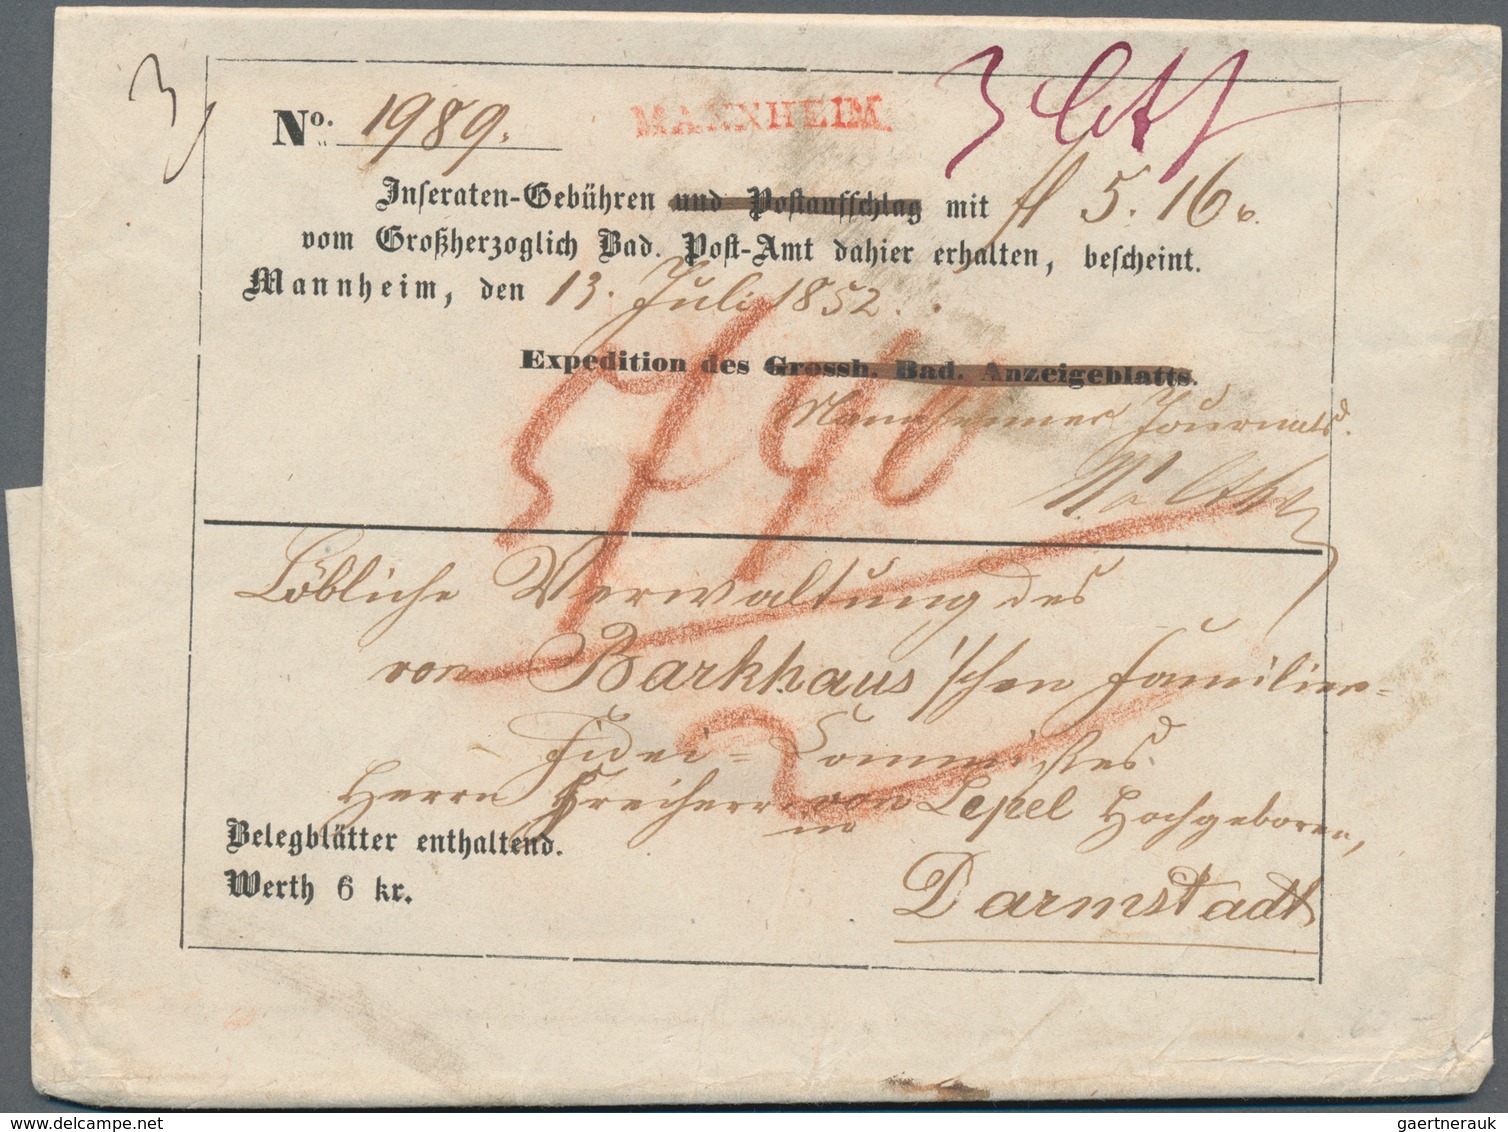 3
3 Lth
No. 1989.
MANNHEIM.
Inseraten-Gebühren und Postaufschlag mit fl 5. 16 x.
vom Großherzoglich Bad. Post-Amt dahier erhalten, bescheint.
Mannheim, den 13. Juli 1852.
Expedition des Grossh. Bad. Anzeigeblatts.
Mannheimer Journals.
Löbliche Verwaltung des
von Barkhaus'schen Familien-
Fidei-Commisses
Herrn Freiherrn von Lepel Hochgeboren,
in
Belegblätter enthaltend.
Werth 6 kr.
Darmstadt
gaertnerauk / www.delcampe.net